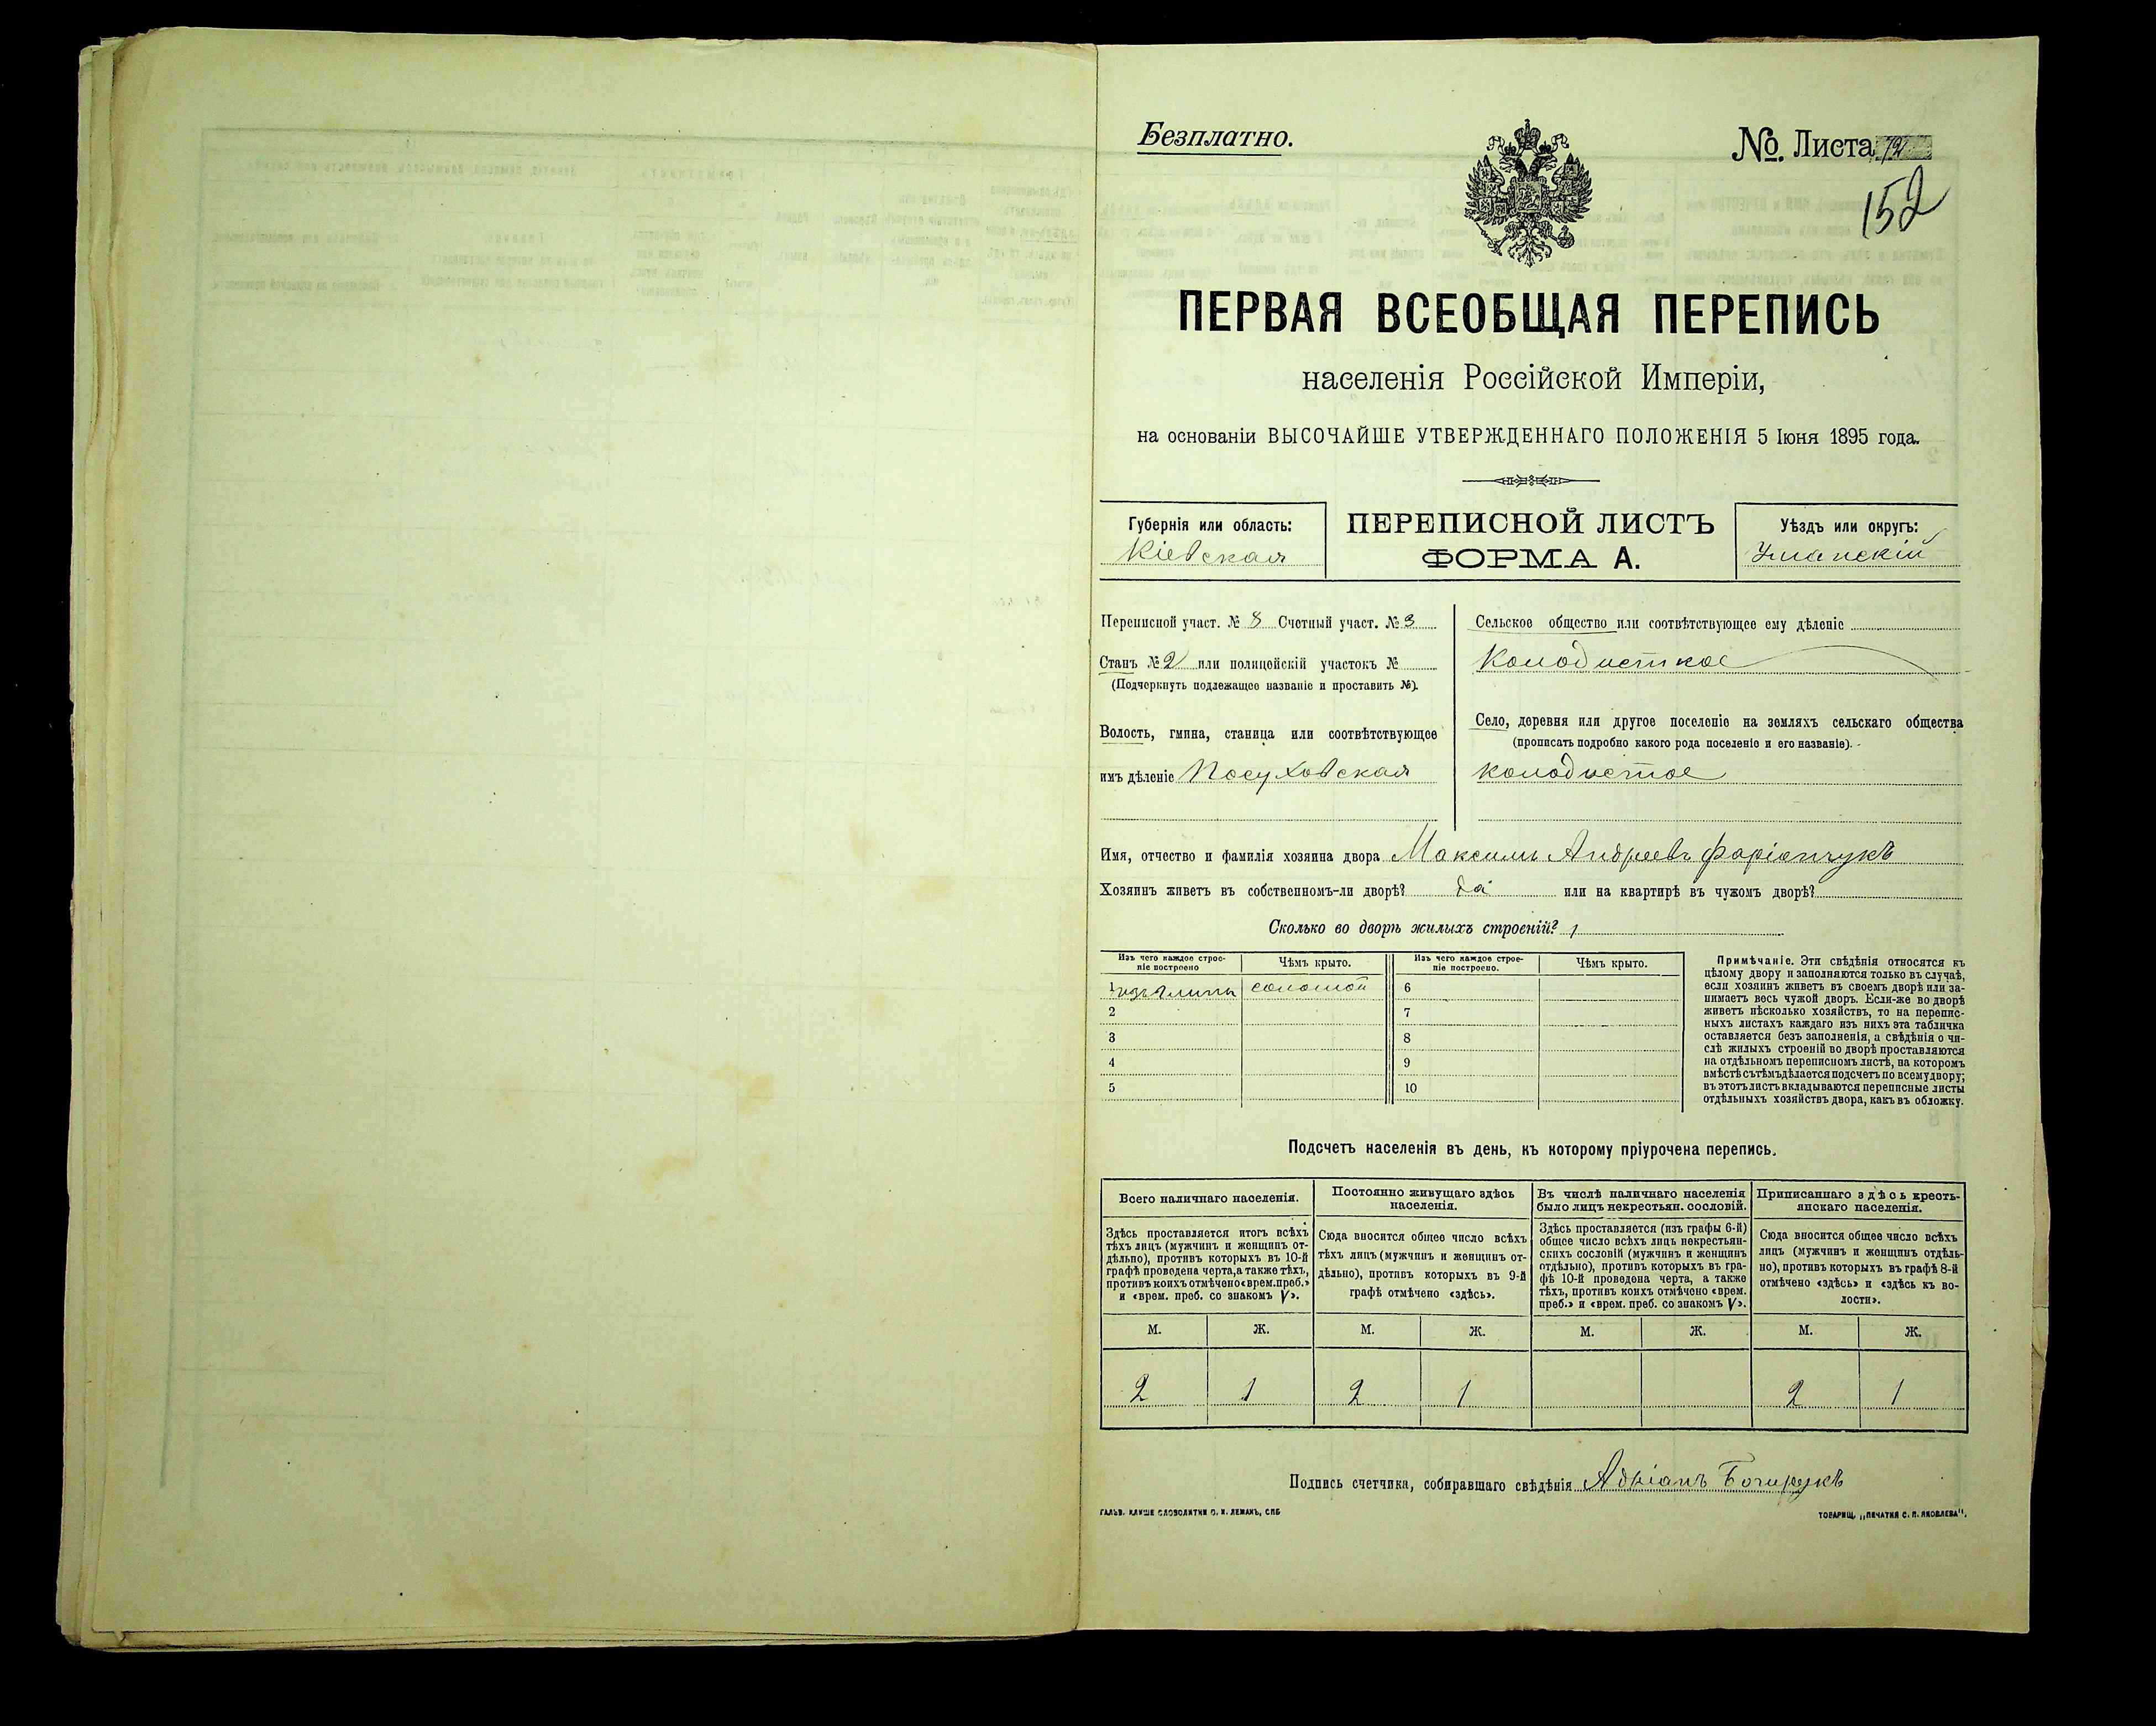 Безплатно.
№. Листа
152
ПЕРВАЯ ВСЕОБЩАЯ ПЕРЕПИСЬ
населенія Россійской Имперіи,
на основаніи ВЫСОЧАЙШЕ УТВЕРЖДЕННАГО ПОЛОЖЕНІЯ 5 Іюня 1895 года.
Губернія или область:
Кіевская
ПЕРЕПИСНОЙ ЛИСТЪ
ФОРМА А.
Уѣздъ или округъ:
Уманскій
Переписной участ. № 8 Счетный участ. № 3
Станъ № 2 или полицейскій участокъ №
(Подчеркнуть подлежащее названіе и проставить №).
Волость, гмина, станица или соотвѣтствующее
имъ дѣленіе Посуховская
Сельское общество или соотвѣтствующее ему дѣленіе
Колодисткое
Село, деревня или другое поселеніе на земляхъ сельскаго общества
(прописать подробно какого рода поселеніе и его названіе).
колодистое
Имя, отчество и фамилія хозяина двора Максимъ Андреевъ Фаріончукъ
Хозяинъ живетъ въ собственномъ-ли дворѣ? да или на квартирѣ въ чужомъ дворѣ?
Сколько во дворѣ жилыхъ строеній? 1
Изъ чего каждое строе-
ніе построено
Чѣмъ крыто.
Изъ чего каждое строе-
ніе построено.
Чѣмъ крыто.
1 изъ глины соломой 6
2 7
3 8
4 9
5 10
Примѣчаніе. Эти свѣдѣнія относятся къ
цѣлому двору и заполняются только въ случаѣ,
если хозяинъ живетъ въ своемъ дворѣ или за-
нимаетъ весь чужой дворъ. Если-же во дворѣ
живетъ нѣсколько хозяйствъ, то на перепис-
ныхъ листахъ каждаго изъ нихъ эта табличка
оставляется безъ заполненія, а свѣдѣнія о чи-
слѣ жилыхъ строеній во дворѣ проставляются
на отдѣльномъ переписномъ листѣ, на которомъ
вмѣстѣ съ тѣмъ дѣлается подсчетъ по всему двору;
въ этотъ листъ вкладываются переписные листы
отдѣльныхъ хозяйствъ двора, какъ въ обложку.
Подсчетъ населенія въ день, къ которому пріурочена перепись.
Всего наличнаго населенія.
Здѣсь проставляется итогъ всѣхъ
тѣхъ лицъ (мужчинъ и женщинъ от-
дѣльно), противъ которыхъ въ 10-й
графѣ проведена черта, а также тѣхъ,
противъ коихъ отмѣчено «врем. преб.»
и «врем. преб. со знакомъ V».
Постоянно живущаго здѣсь
населенія.
Сюда вносится общее число всѣхъ
тѣхъ лицъ (мужчинъ и женщинъ от-
дѣльно), противъ которыхъ въ 9-й
графѣ отмѣчено «здѣсь».
Въ числѣ наличнаго населенія
было лицъ некрестьян. сословій.
Здѣсь проставляется (изъ графы 6-й)
общее число всѣхъ лицъ некрестьян-
скихъ сословій (мужчинъ и женщинъ
отдѣльно), противъ которыхъ въ гра-
фѣ 10-й проведена черта, а также
тѣхъ, противъ коихъ отмѣчено «врем.
преб.» и «врем. преб. со знакомъ V».
Приписаннаго здѣсь кресть-
янскаго населенія.
Сюда вносится общее число всѣхъ
лицъ (мужчинъ и женщинъ отдѣль-
но), противъ которыхъ въ графѣ 8-й
отмѣчено «здѣсь» и «здѣсь къ во-
лости».
М. Ж. М. Ж. М. Ж. М. Ж.
2 1 2 1 2 1
Подпись счетчика, собиравшаго свѣдѣнія Адріанъ
ГАЛЬВ. КЛИШЕ СЛОВОЛИТНИ О. И. ЛЕМАНЪ, СПБ
ТОВАРИЩ. „ПЕЧАТНЯ С. П. ЯКОВЛЕВА".